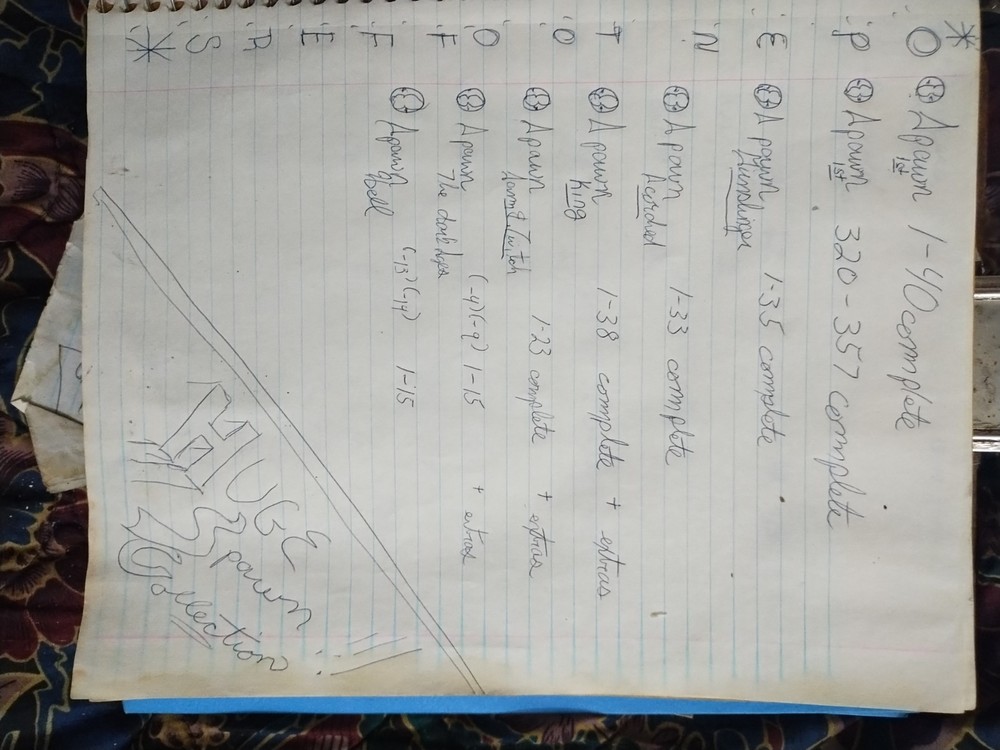 * O Spawn 1-40 complete
1st
P Spawn 320-357 complete
1st
E Spawn 1-35 complete
Gunslinger
N Spawn 1-33 complete
Scorched
T Spawn 1-38 complete + extras
King
O Spawn 1-23 complete + extras
Sam & Twitch
O Spawn (-4)(-9) 1-15 + extras
The dark Ages
F Spawn (-13)(-14) 1-15
Hell
F
E
R
S
*
HUGE
Spawn
Collection !!!